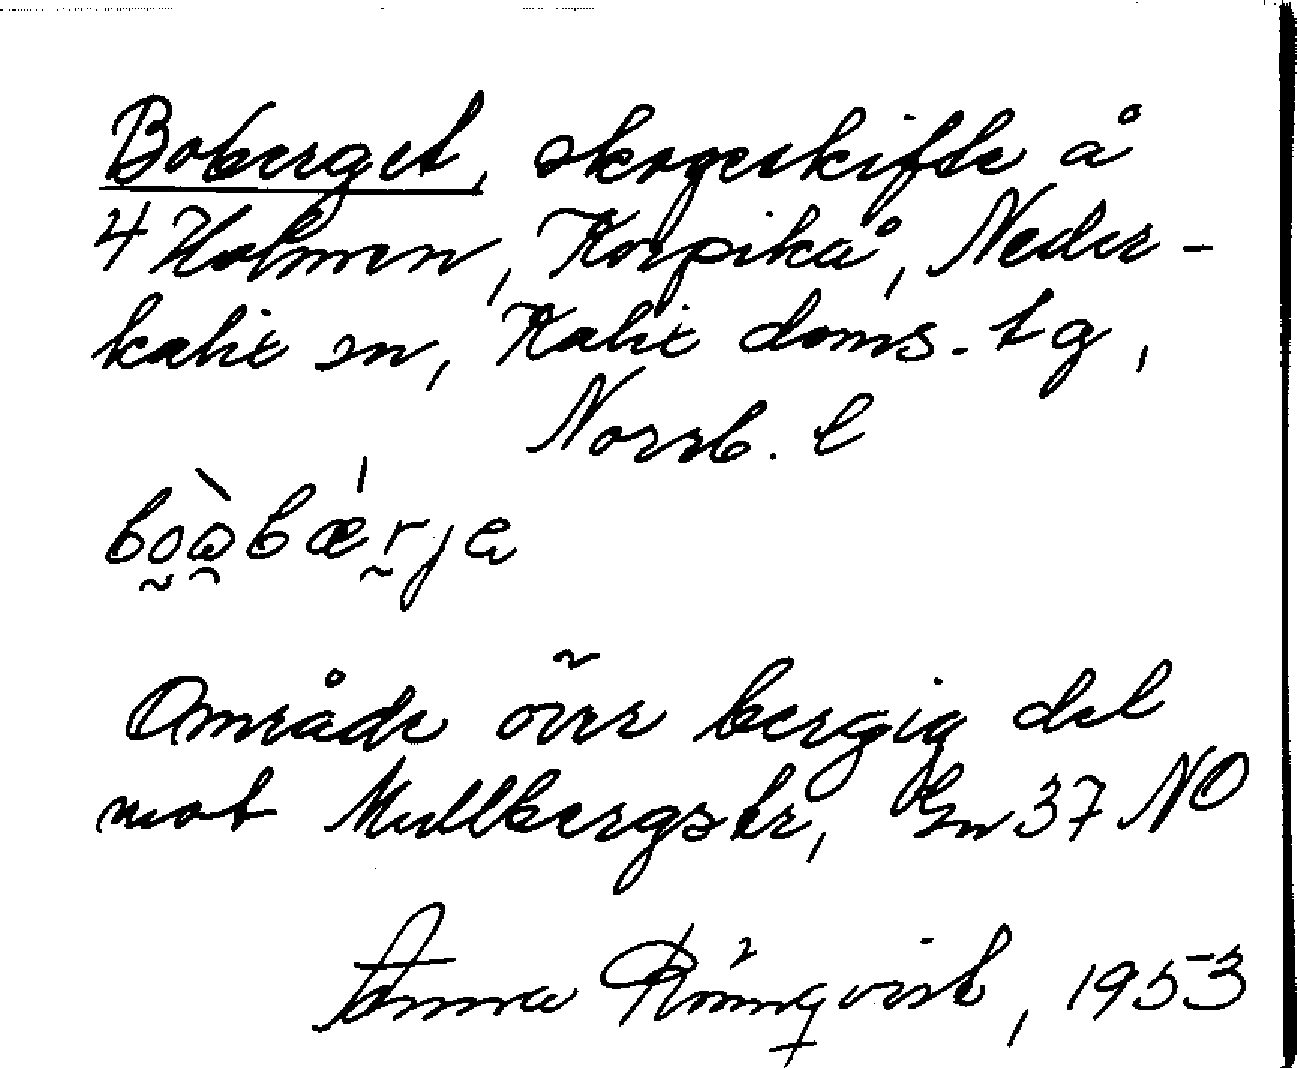 Boberget, skogsskifte å
4 Holmen, Korpikå, Neder-
kalix sn, Kalix doms. tg,
Norrb. l
Område över bergig del
mot Mullbergstr, Gn 37 NO
Anna Rönnqvist, 1953